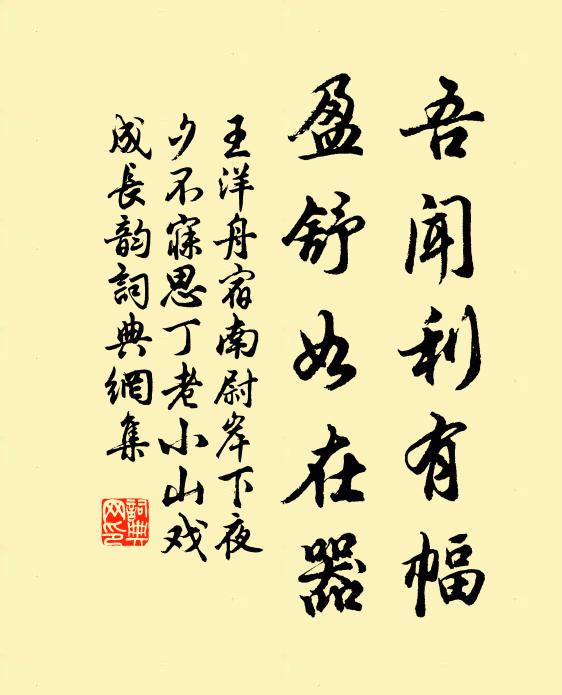 吾闻利有幅
盈舒如在器
王洋舟宿南尉岸下夜
少不寐思丁老小山戏
成长韵词典网集
词典网印